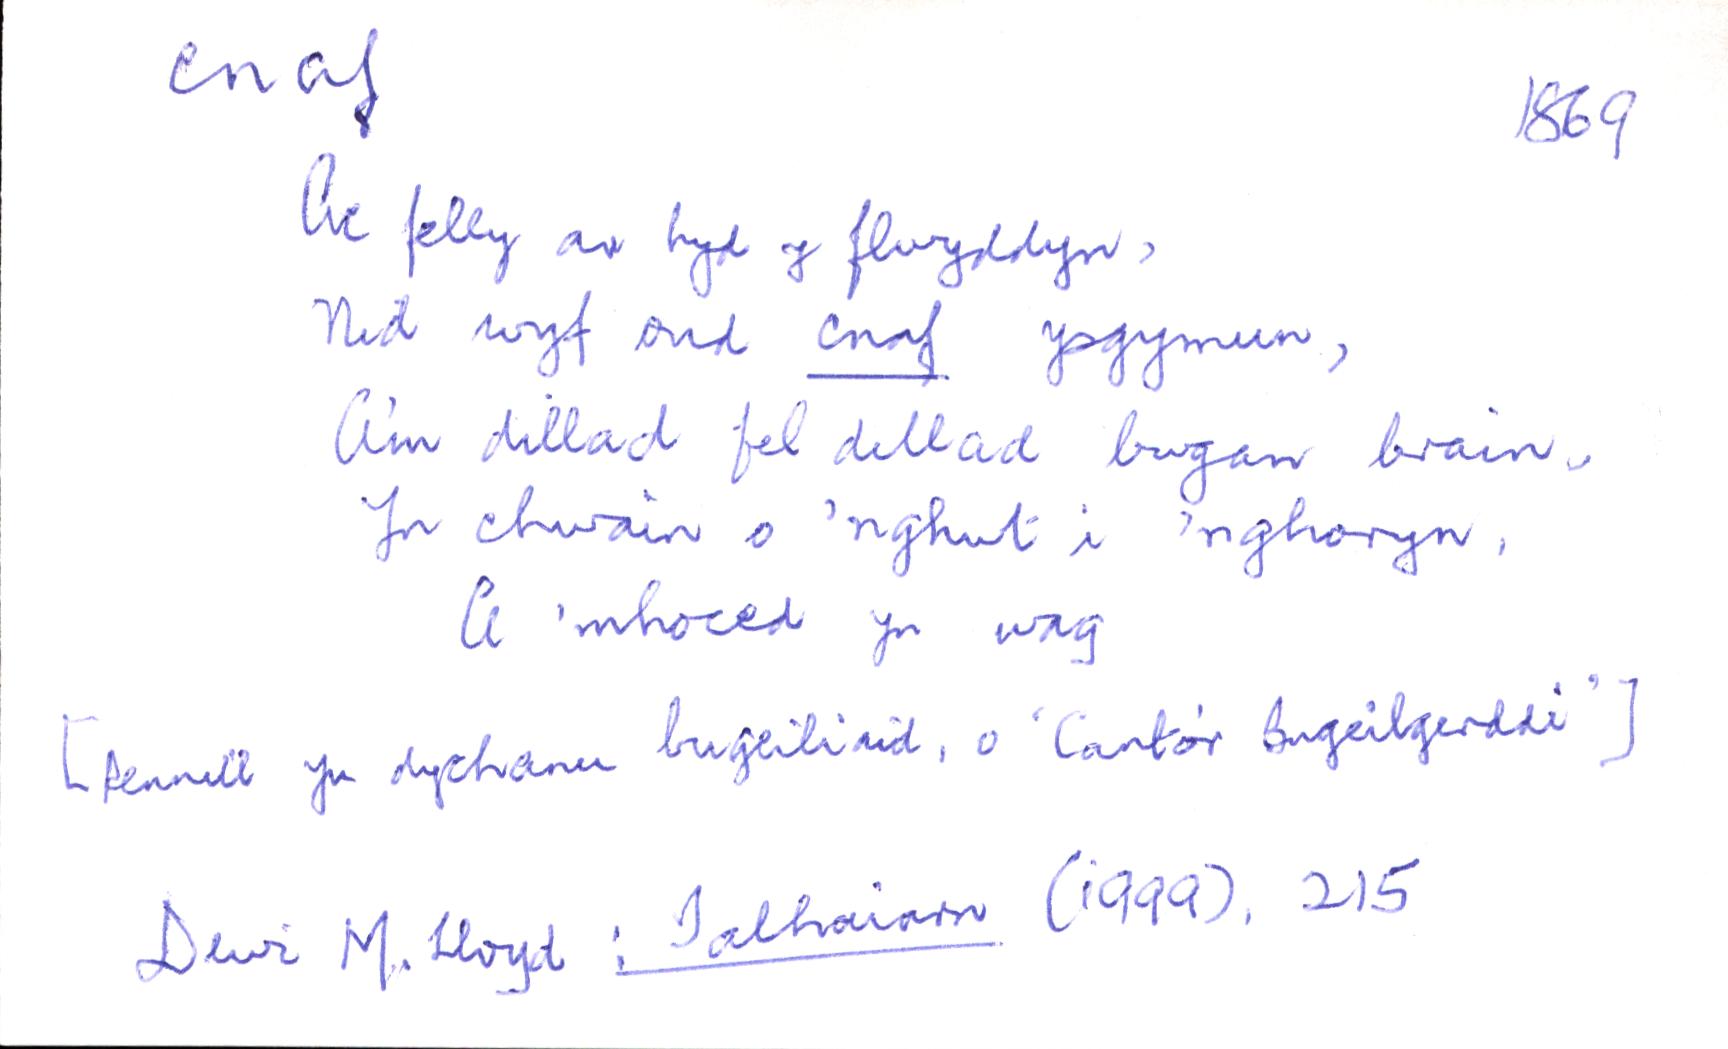 cnaf
1869
Ac felly ar hyd y flwyddyn,
Nid wyf ond cnaf ysgymun,
A'm dillad fel dillad bwgan brain,
Yn chwain o 'nghut i 'nghoryn,
A 'mhoced yn wag
[Pennill yn dychanu bugeiliaid, o 'Cantor Bugeilgerddi']
Dewi M. Lloyd : Talhaiarn (1999), 215